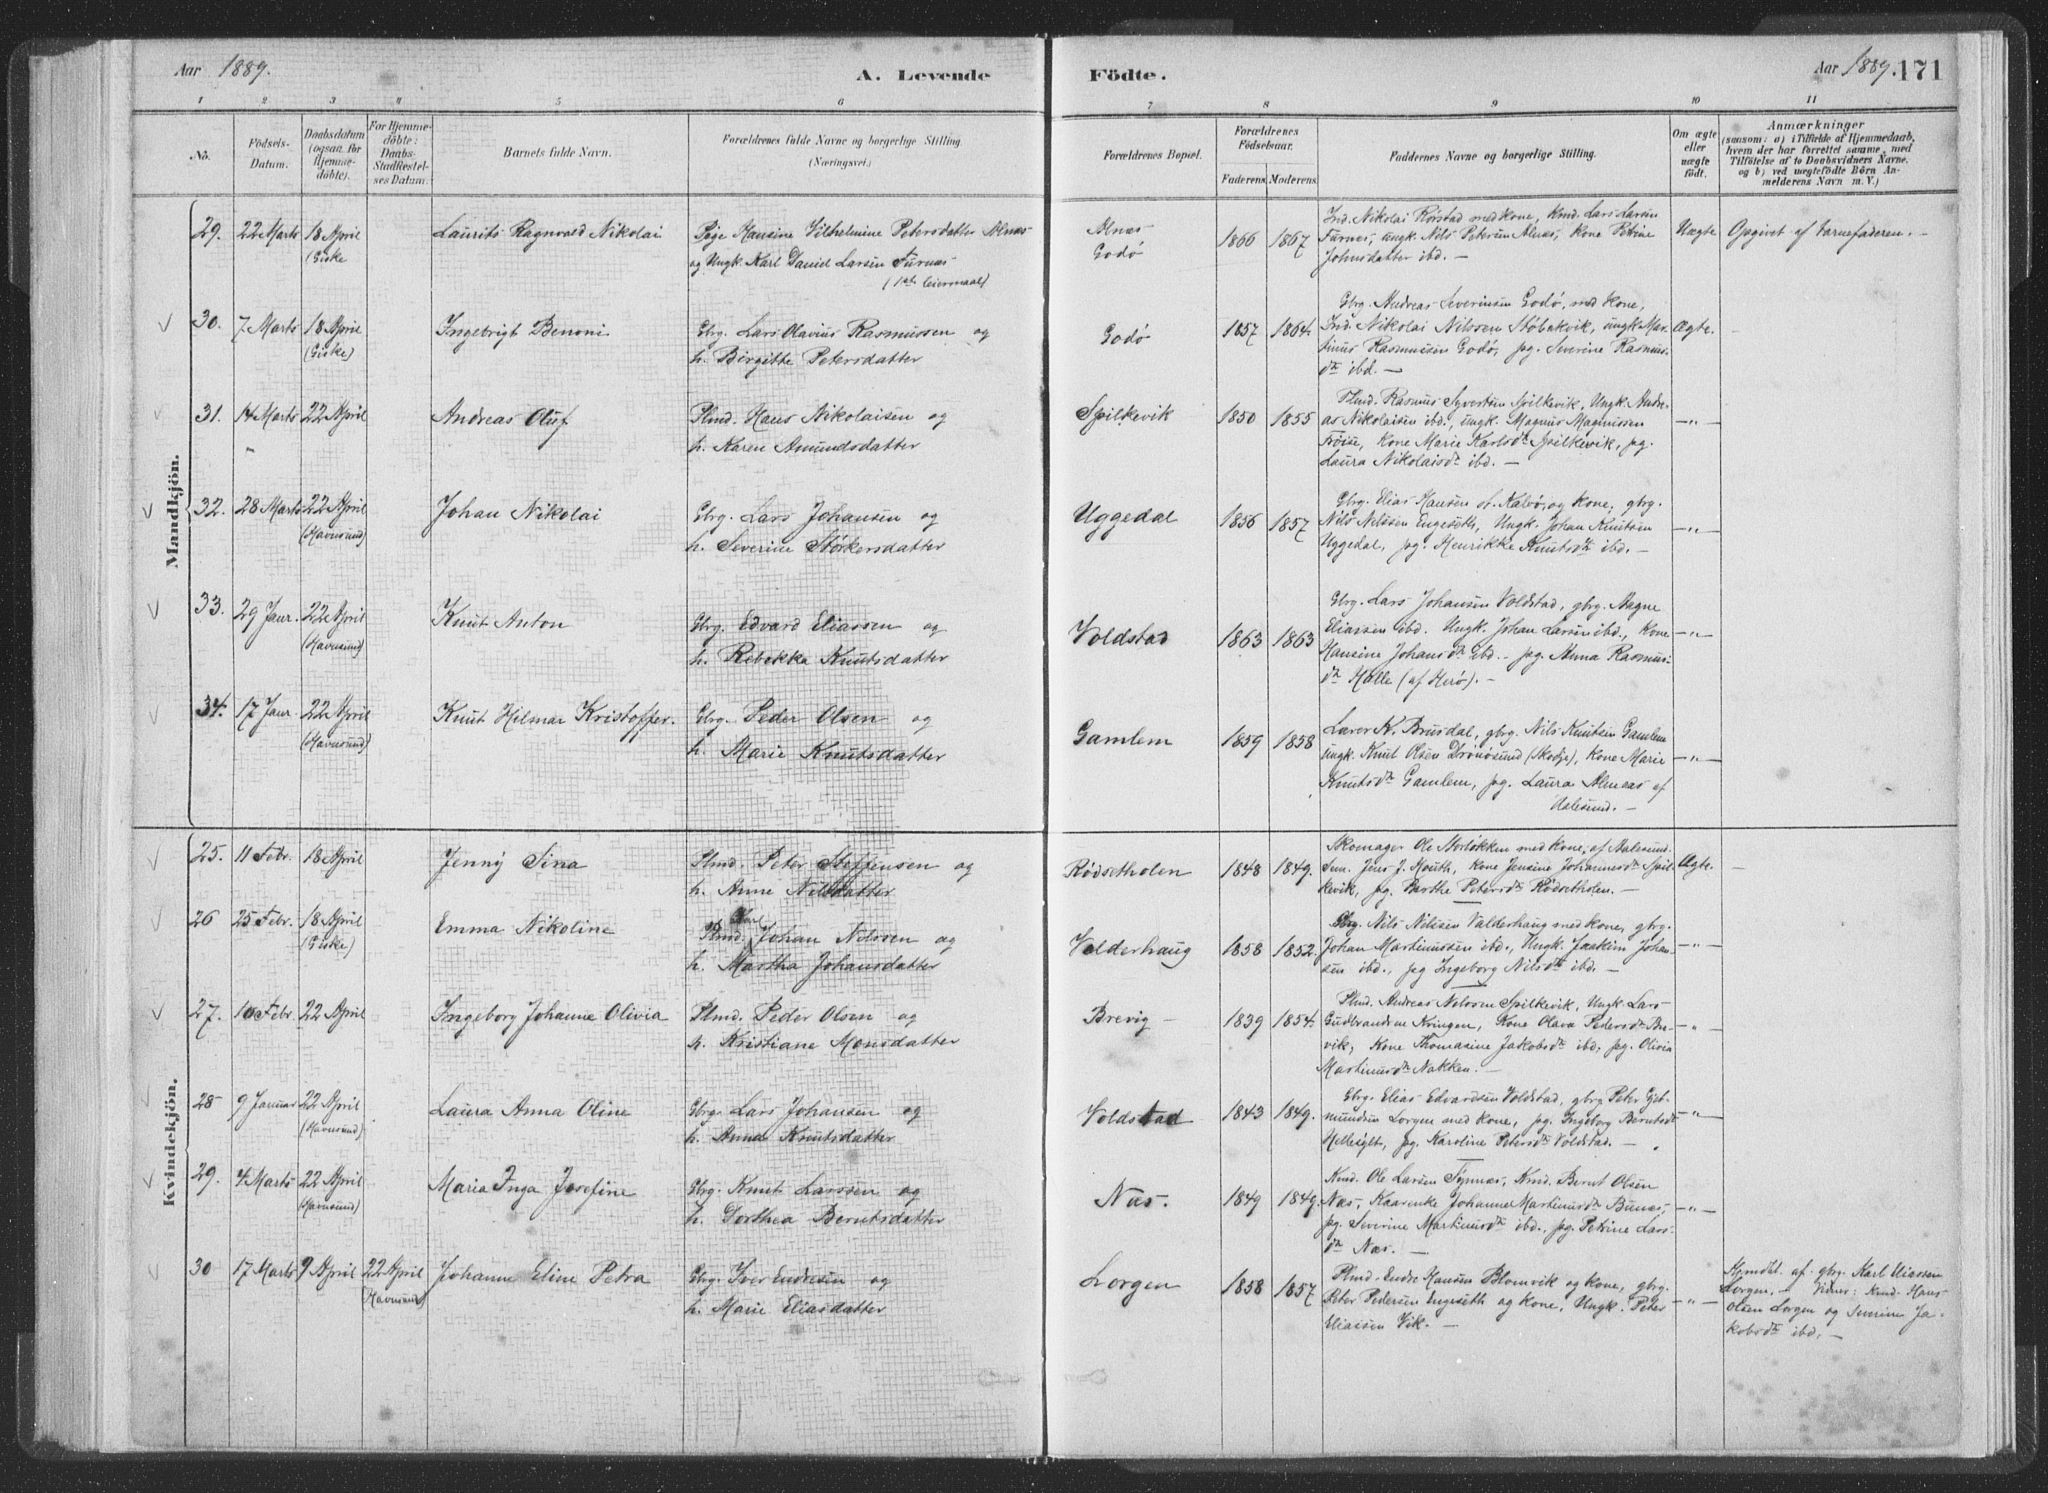 Aar 1889.
A. Levende
Födte.
Aar 1889. 171
1 2 3 4 5 6 7 8 9 10 11
No.
Födsels-
Datum.
Daabsdatum
(ogsaa for
Hjemme-
döbte).
For Hjemme-
döbte:
Daabs-
Stadfæstel-
ses Datum.
Barnets fulde Navn.
Forældrenes fulde Navne og borgerlige Stilling
(Næringsvei.)
Forældrenes Bopæl.
Forældrenes
Födselsaar.
Faderens Moderens
Faddernes Navne og borgerlige Stilling.
Om ægte
eller
uægte
födt.
Anmærkninger
(saasom: a) i Tilfælde af Hjemmedaab,
hvem der har forrettet samme, med
Tilföielse af to Daabsvidners Navne.
og b) ved uægtefödte Börn An-
melderens Navn m. V.)
Mandkjön.
29. 22 Marts 18 April
(Giske
Laurits Ragnvald Nikolai
Pige Hansine Vilhelmine Petersdatter Alnæs
og Ungk. Karl Daniel Larsen Furnæs
(1ste leiermaal)
Alnæs
Godø
1866 1867
Ind. Nikolai Rørstad med kone, Kmd. Lars Larsen
Furnes, ungk. Nils Petersen Alnæs, Kone Petrine
Johnsdatter ibd. —
Uægte
Opgivet af barnefaderen. —
30. 7 Marts 18 April
(Giske)
Ingebrigt Benoni
Gbrg. Lars Olavius Rasmussen og
h. Birgitte Petersdatter
Godø
1857 1864.
Gbrg. Andreas Severinsen Godø, med Kone,
Ind. Nikolai Nilssen Støbekvik, ungk Mar-
tinus Rasmussen Godø, pg. Severine Rasmus-
dtr ibd. —
Ægte.
—
31. 14 Marts 22 April
Andreas Oluf
Plmd. Hans Nikolaisen og
h. Karen Amundsdatter
Spilkevik
1850 1855
Plmd. Rasmus Syvertsen Spilkevik, Ungk. Andre-
as Nikolaisen ibd., ungk. Magnus Magnussen
Frøise, Kone Marie Karlsdtr Spilkevik, pg.
Laura Nikolaisdtr ibd. —
—"—
32. 28 Marts 22 April
(Havnsund)
Johan Nikolai
Gbrg. Lars Johansen og
h. Severine Størkersdatter
Uggedal
1856 1857
Gbrg. Elias Hansen st. Kalvø, og Kone, gbrg.
Nils Nilssen Engeseth, Ungk. Johan Knutsen
Uggedal, pg. Henrikke Knutsdtr ibd. —
—"—
33. 29 Janr. 22 April
(Havnsund)
Knut Anton
Gbrg. Edvard Eliassen og
h. Rebekka Knutsdatter
Voldstad
1863 1863
Gbrg. Lars Johansen Voldstad, gbrg. Magne
Eliassen ibd. Ungk. Johan Larsen ibd., Kone
Hansine Johansdtr ibd. — pg. Anna Rasmus-
dtr Halle (af Herø). —
—"—
34. 17 Janr 22 April
(Havnsund)
Knut Hilmar Kristoffer.
Gbrg. Peder Olsen og
h. Marie Knutsdatter
Gamlem
1859 1858
Lærer K. Brusdal, gbrg. Nils Knutsen Gamlem
ungk. Knut Olsen Dronøsund (Skodje), Kone Marie
Knutsdtr Gamlem, pg. Laura Almaas af
Aalesund. —
—"—
Kvindekjön.
25. 11 Febr. 18 April
Jenny Sina
Plmd. Peter Steffensen og
h. Anne Nilsdatter
Rødsetholen
1848 1849.
Skomager Ole Storløkken med kone, af Aalesund.
Sem. Jens J. Houth, kone Jensine Johannesdtr Spil-
kevik, pg. Barthe Petersdtr Rødsetholen. —
Ægte.
—
26 25 Febr. 18 April
(Giske)
Emma Nikoline
Plmd. Johan Nilssen og
h. Martha Johansdatter
Valderhaug
1858 1852.
Gbrg. Nils Nilssen Valderhaug med kone, gbrg.
Johan Martinussen ibd., Ungk. Joakim Johan-
sen ibd., pg Ingeborg Nilsdtr ibd. —
—"—
27. 10 Febr. 22 April
Ingeborg Johanne Olivia
Plmd. Peder Olsen og
h. Kristiane Monsdatter
Brevig —
1839 1854.
Plmd. Andreas Nilssen Spilkevik, Ungk. Lars
Gudbrandsen Kringen, Kone Olava Pedersdtr Bre-
vik, Kone Thomasine Jakobsdtr ibd, pg. Olivia
Martinusdtr Nakken. —
—"
28 9 Januar 22 April
(Havnsund)
Laura Anna Oline
Gbrg. Lars Johansen og
h. Anna Knutsdatter
Voldstad
1843 1849.
Gbrg. Elias Edvardsen Voldstad, gbrg Peter Gud-
mundsen Lorgen med kone, pg. Ingeborg Berntsdtr
Hellesylt, pg. Karoline Petersdtr Voldstad. —
—"—
29. 4 Marts 22 April
(Havnsund)
Maria Inga Josefine
Gbrg. Knut Larssen og
h. Dorthea Berntsdatter
Næs.
1849 1849.
Kmd. Ole Larsen Synnæs, Kmd. Bernt Olsen
Næs, Kaarenke Johanne Martinusdtr Bunes,
pg. Severine Martinusdtr ibd., pg. Petrine Lars-
dtr Næs. —
—"—
30 17 Marts 9 April 22 April
(Havnsund)
Johanne Eline Petra
Gbrg. Iver Endresen og
h. Marie Eliasdatter
Lorgen
1858 1857
Plmd. Endre Hansen Blomvik og kone, gbrg.
Peter Pedersen Engeseth og kone, Ungk. Peter
Eliassen Vik. —
—"—
Hjmdbt. af gbrg. Karl Eliassen
Lorgen. — Vidner: Kmd. Hans
Olsen Lorgen og Severine Ja-
kobsdtr ibd. —